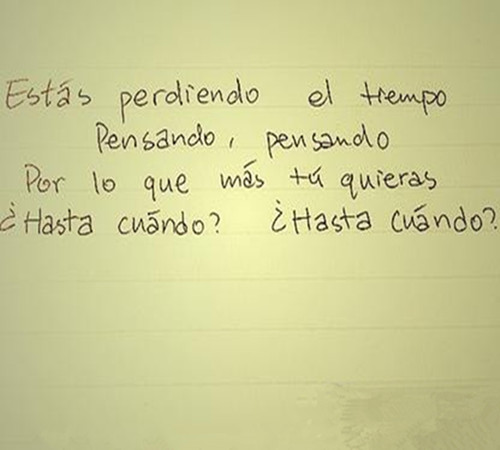 Estás perdiendo el tiempo
Pensando, pensando
Por lo que más tú quieras
¿Hasta cuándo? ¿Hasta cuándo?